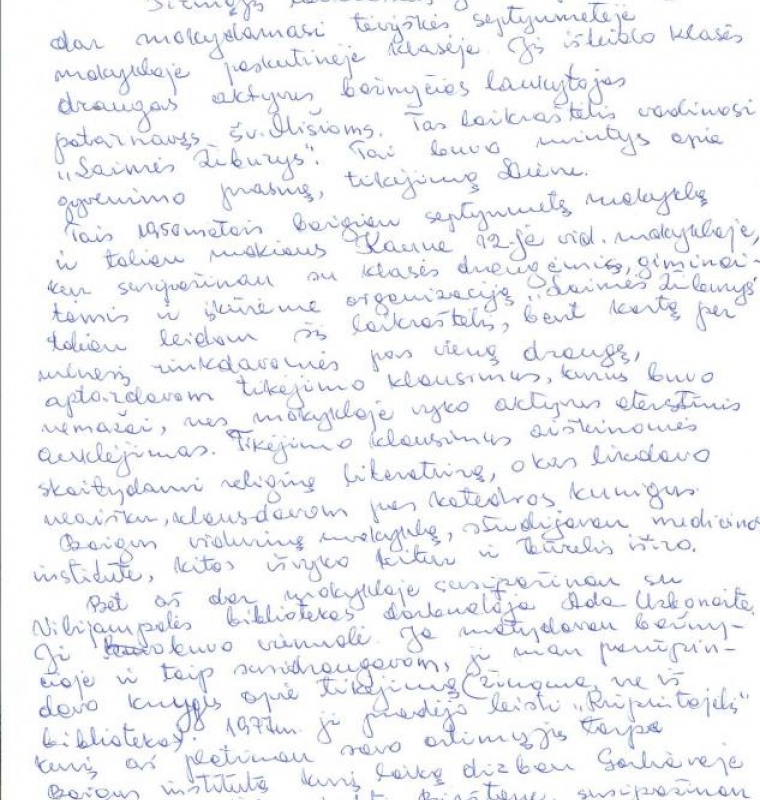 dar mokydamasi tėviškės septynmetėje
mokykloje paskutinėje klasėje. Jį išleido klasės
draugas aktyvus bažnyčios lankytojas
patarnavęs šv. Mišioms. Tas laikraštėlis vadinosi
"Laimės Žiburys". Tai buvo mintys apie
gyvenimo prasmę, tikėjimą Dievu.
Tais 1950 metais baigiau septynmetę mokyklą
ir toliau mokiaus Kaune 12-je vid. mokykloje,
kur susipažinau su klasės draugėmis, giminai-
tėmis ir įkūrėme organizaciją "Laimės Žiburys"
toliau leidom šį laikraštėlį, bent kartą per
mėnesį rinkdavomės pas vieną draugę,
aptardavom tikėjimo klausimus, kurių buvo
nemažai, nes mokykloje vyko aktyvus ateistinis
auklėjimas. Tikėjimo klausimus aiškinomės
skaitydami religinę literatūrą, o kas likdavo
neaišku, klausdavom pas katedros kunigus.
Baigus vidurinę mokyklą, studijavau medicinos
institute, kitos išvyko kitur ir būrelis iširo.
Bet aš dar mokykloje susipažinau su
Vilijampolės bibliotekos darbuotoja Ada Urbonaite.
Ji buvo vienuolė. Ją matydavau bažny-
čioje ir taip susidraugavom, ji man parūpin-
davo knygų apie tikėjimą (žinoma, ne iš
bibliotekos). 1977 m. ji pradėjo leisti "Rūpintojėlį"
kurį aš platinau savo artimųjų tarpe
Baigus institutą kurį laiką dirbau Garliavoje
susipažinau